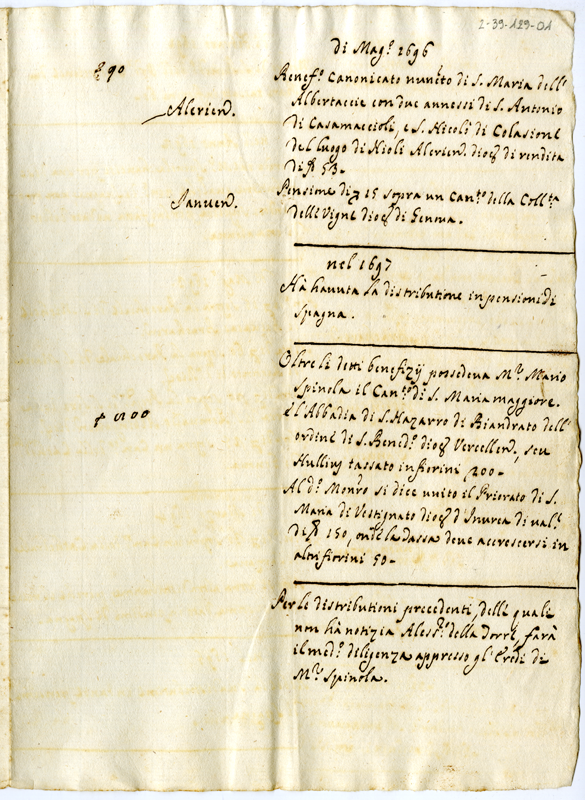 2-39-129-01
di Mag.º 1696
90
Benef.º Canonicato nunito di S. Maria dell'
Alerien.
Albertaccie con due annessi di S. Antonio
di Casamaccioli, e S. Nicolò di Colasione
del luogo di Nioli Alerien. dioc. di rendita
di 53-
Pensione di 15 sopra un Can.to della Coll.ta
Januen.
delle Vigne dioc. di Genova.
nel 1697
Hà hauuta la distributione in pensioni di
Spagna.
Oltre li detti benefizij possedeua M.r Mario
Spinola il Can.to di S. Maria maggiore.
E l'Abbadia di S. Nazarro di Biandrato dell'
200
ordine di S. Bened.º dioc. Vercellen., seu
Nullius tassato in fiorini 200-
Al d.º Mon.ro si dice unito il Priorato di S.
Maria di Vestignato dioc. d'Inurea di ual.
di 150, onde la Tassa deue accrescersi in
altri fiorini 50-
Per le distributioni precedenti, delle quali
non hà notizia Aless.º della Torre, farà
il med.º deligenza appresso gl'Eredi di
M.r Spinola.